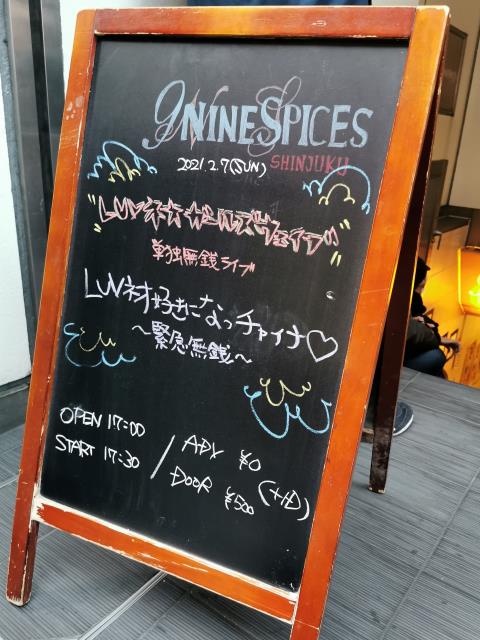 9NINESPICES
2021.2.7(SUN) SHINJUKU
"LUVネオガールズウェイブ"
単独無銭ライブ
LUVネオ好きになっチャイナ♡
～緊急無銭～
OPEN 17:00 / ADV ¥0
START 17:30 DOOR ¥500 (+1D)